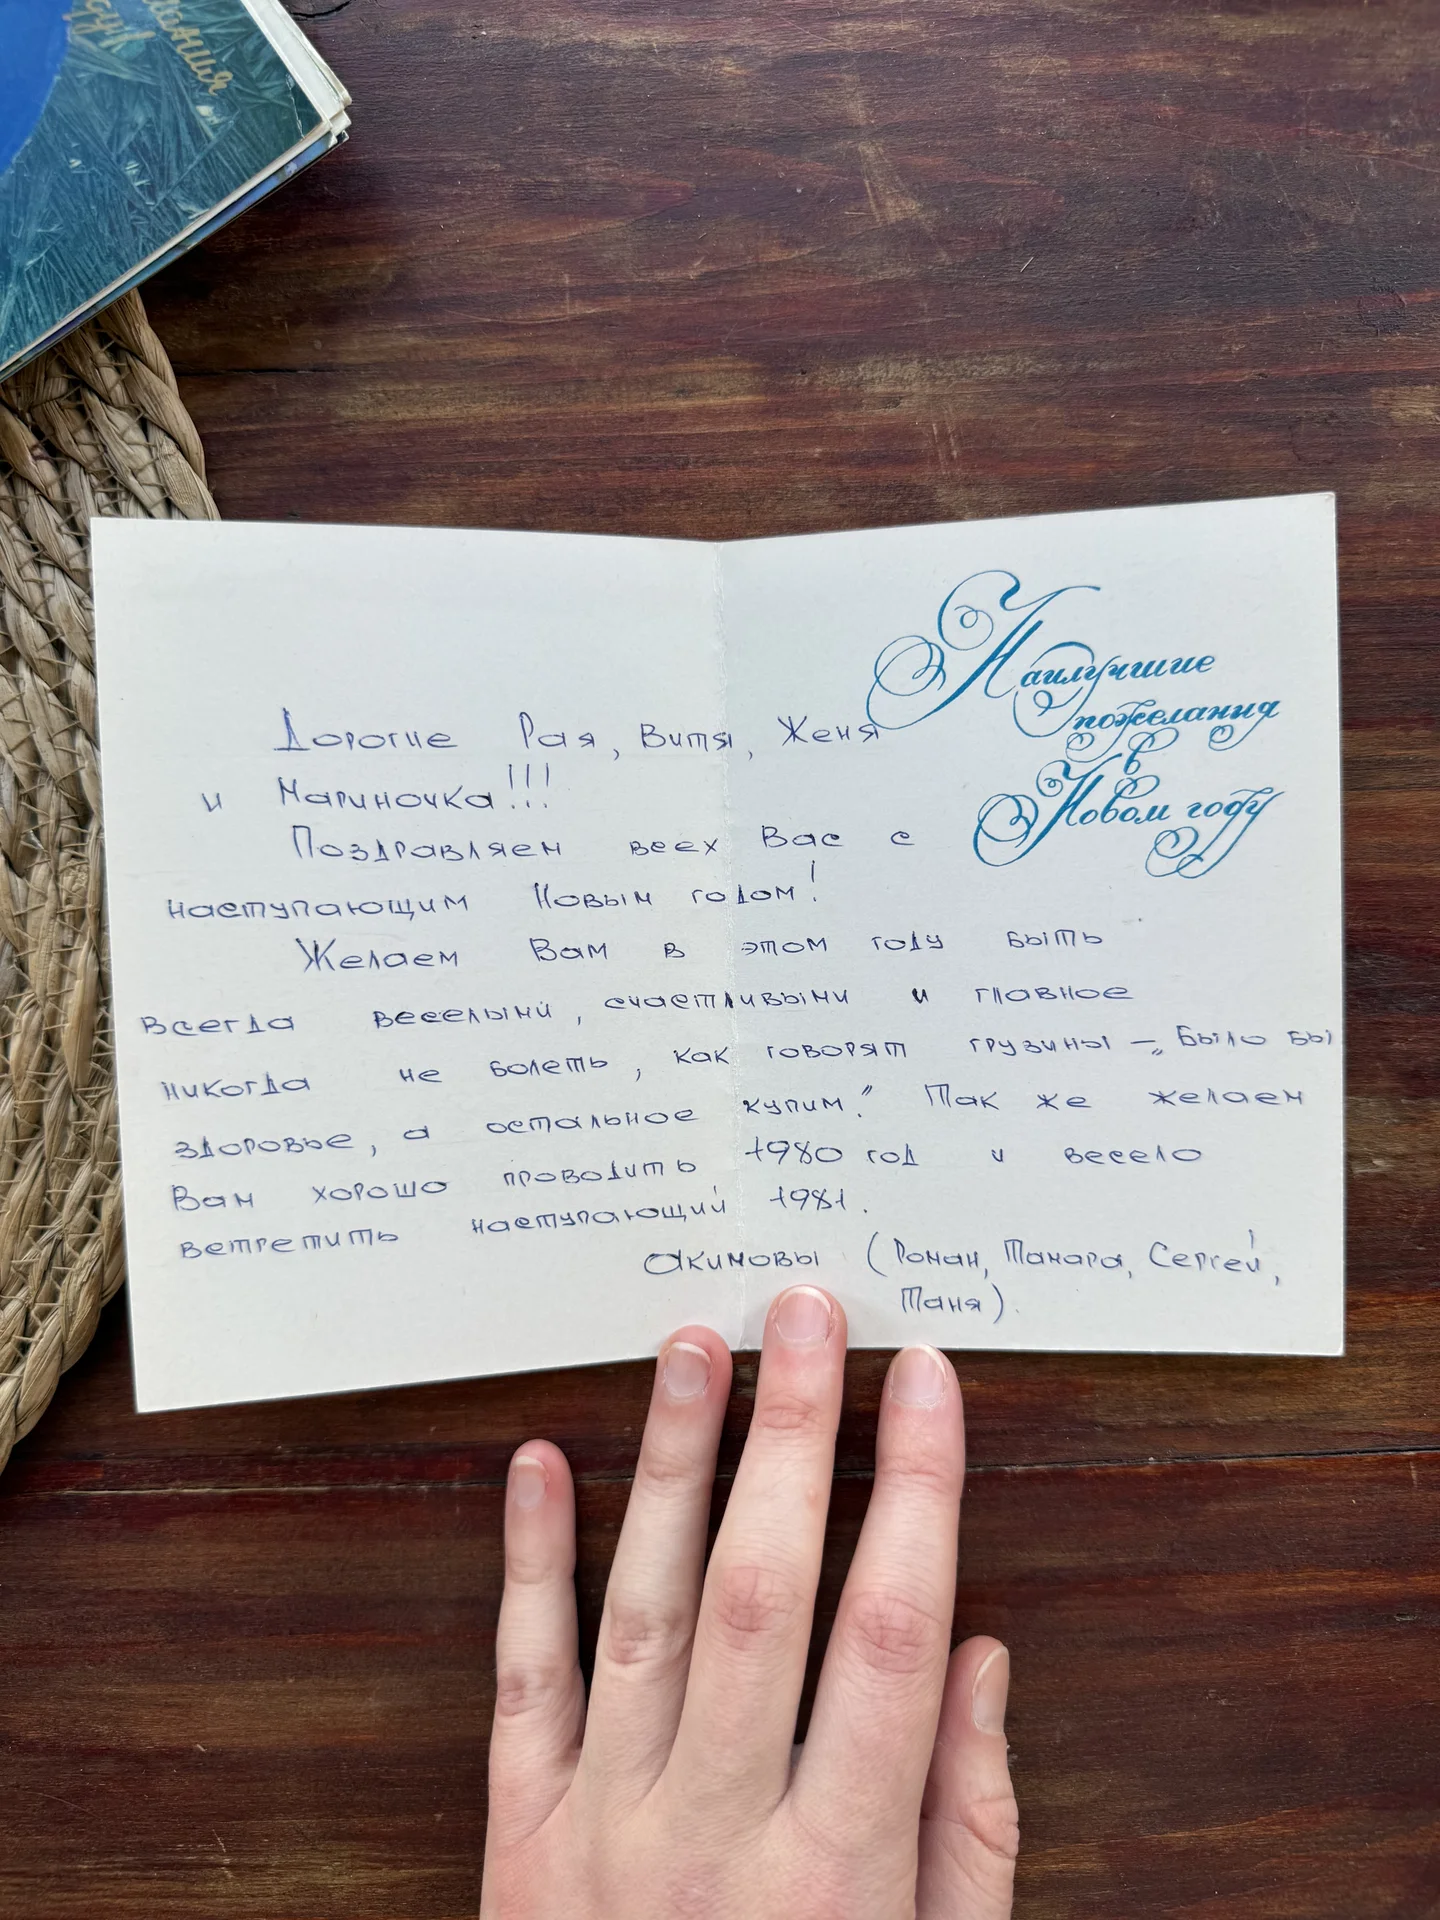 лания
ду!
Наилучшие
пожелания
в
Новом году
Дорогие Рая, Витя, Женя
и Мариночка!!!
Поздравляем всех Вас с
наступающим Новым годом!
Желаем Вам в этом году быть
всегда веселыми, счастливыми и главное
никогда не болеть, как говорят грузины — „Было бы
здоровье, а остальное купим." Так же желаем
Вам хорошо проводить 1980 год и весело
встретить наступающий 1981.
Акимовы (Роман, Тамара, Сергей,
Таня).